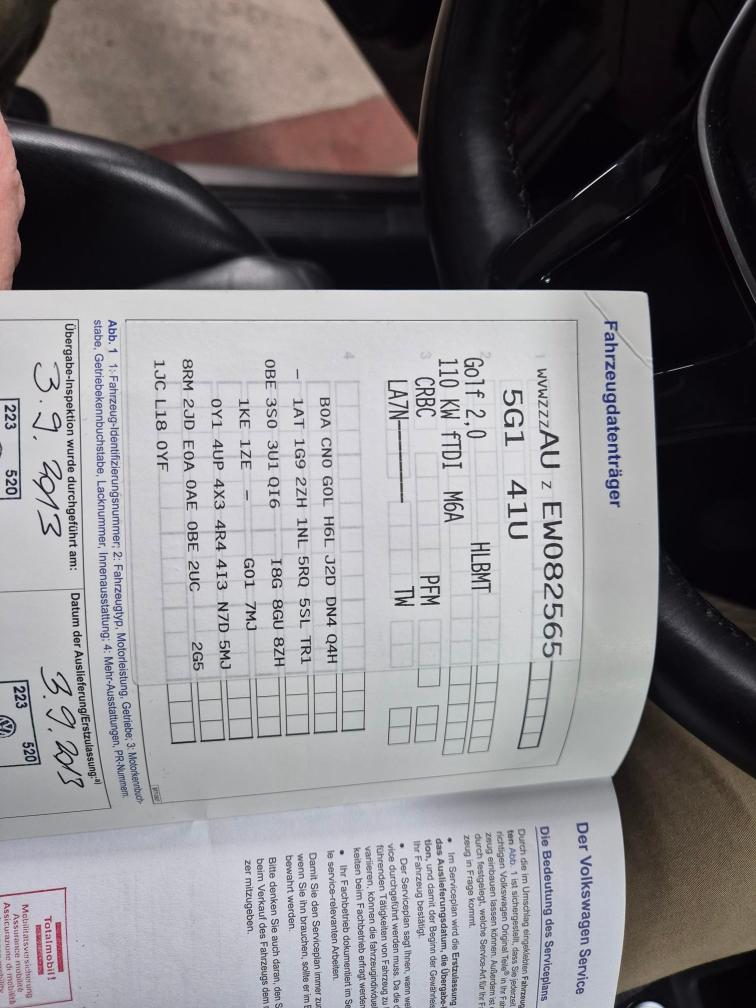 Fahrzeugdatenträger
1 WVWZZZAU Z EW082565
5G1 41U
2 Golf 2,0 HLBMT
110 KW fTDI M6A
3 CRBC PFM
LA7N TW
4
B0A CN0 G0L H6L J2D DN4 Q4H
– 1AT 1G9 2ZH 1NL 5RQ 5SL TR1
0BE 3S0 3U1 QI6 I8G 8GU 8ZH
1KE 1ZE – G01 7MJ
0Y1 4UP 4X3 4R4 4I3 N7D 5MJ
8RM 2JD E0A 0AE 0BE 2UC 2G5
1JC L18 0YF
Abb. 1 1: Fahrzeug-Identifizierungsnummer; 2: Fahrzeugtyp, Motorleistung, Getriebe; 3: Motorkennbuch-
stabe, Getriebekennbuchstabe, Lacknummer, Innenausstattung; 4: Mehr-Ausstattungen, PR-Nummern.
Übergabe-Inspektion wurde durchgeführt am:
3.9.2013
223 520
Datum der Auslieferung/Erstzulassung:a)
3.9.2013
223 520
Der Volkswagen Service
Die Bedeutung des Serviceplans
Durch die im Umschlag eingeklebten Fahrzeug
ten Abb. 1 ist sichergestellt, dass Sie jederzeit
richtigen Volkswagen Original Teile® in Ihr Fahr
zeug einbauen lassen können. Außerdem ist
durch festgelegt, welche Service-Art für Ihr F
zeug in Frage kommt.
• Im Serviceplan wird die Erstzulassung
das Auslieferungsdatum, die Übergabe-I
tion, und damit der Beginn der Gewährleis
Ihr Fahrzeug bestätigt.
• Der Serviceplan sagt Ihnen, wann we
vice durchgeführt werden muss. Da die d
führenden Tätigkeiten von Fahrzeug zu
variieren, können die fahrzeugindividue
keiten beim Fachbetrieb erfragt werde
• Ihr Fachbetrieb dokumentiert im S
le service-relevanten Arbeiten.
Damit Sie den Serviceplan immer zur
wenn Sie ihn brauchen, sollte er im B
bewahrt werden.
Bitte denken Sie auch daran, den S
beim Verkauf des Fahrzeugs dem
zer mitzugeben.
Totalmobil!
Mobilitätsversicherung
Assurance mobilité
Assicurazione di mobilità